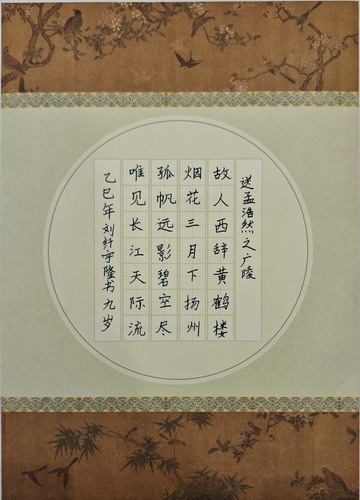 送孟浩然之广陵
故人西辞黄鹤楼
烟花三月下扬州
孤帆远影碧空尽
唯见长江天际流
乙巳年刘纤宇隆书九岁